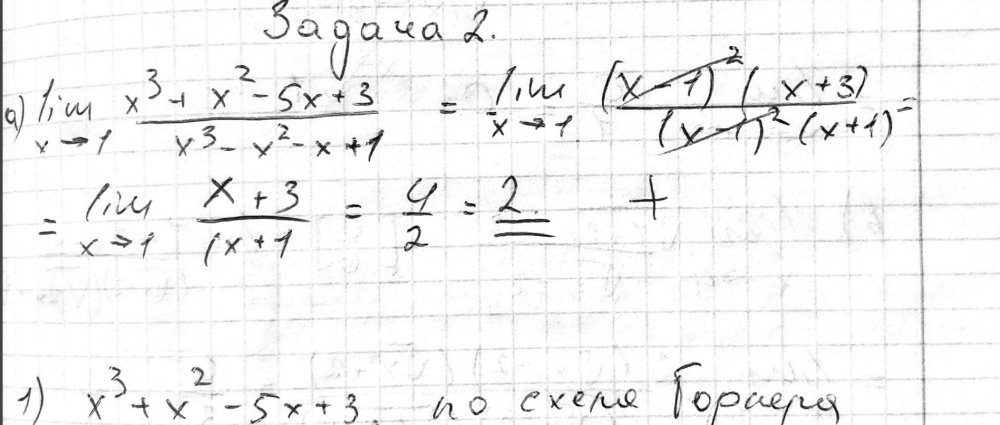 Задача 2.
а) lim x→1 (x³ + x² - 5x + 3)/(x³ - x² - x + 1) = lim x→1 ((x-1)² (x+3))/((x-1)² (x+1)) =
= lim x→1 (x + 3)/(x + 1) = 4/2 = 2. +
1) x³ + x² - 5x + 3. по схеме Горнера